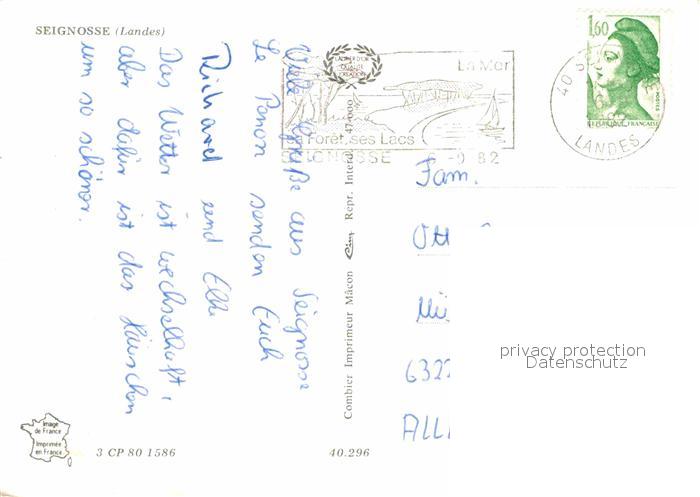 SEIGNOSSE (Landes)
Viele Grüße aus Seignosse
Le Penon senden Euch
Richard und Elke
Das Wetter ist wechselhaft,
aber dafür ist das Häuschen
um so schöner.
La Mer
sa Forêt, ses Lacs
SEIGNOSSE
82
1,60
POSTES
REPUBLIQUE FRANÇAISE
40
LANDES
LAURIER D'OR
QUALITE
CREATION
Combier Imprimeur Mâcon Cim Repr. Interd. 47-000
Fam.
Ott
632
ALL
privacy protection
Datenschutz
Image
de France
Imprimée
en France
3 CP 80 1586
40.296